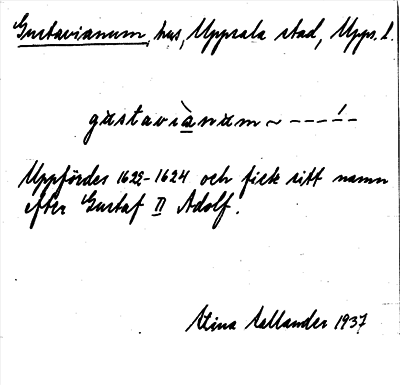 Gustavianum, hus, Uppsala stad, Upps. l.
gustavìanum ~ – – – –́ –
Uppfördes 1622–1624 och fick sitt namn
efter Gustaf II Adolf.
Stina Sallander 1937